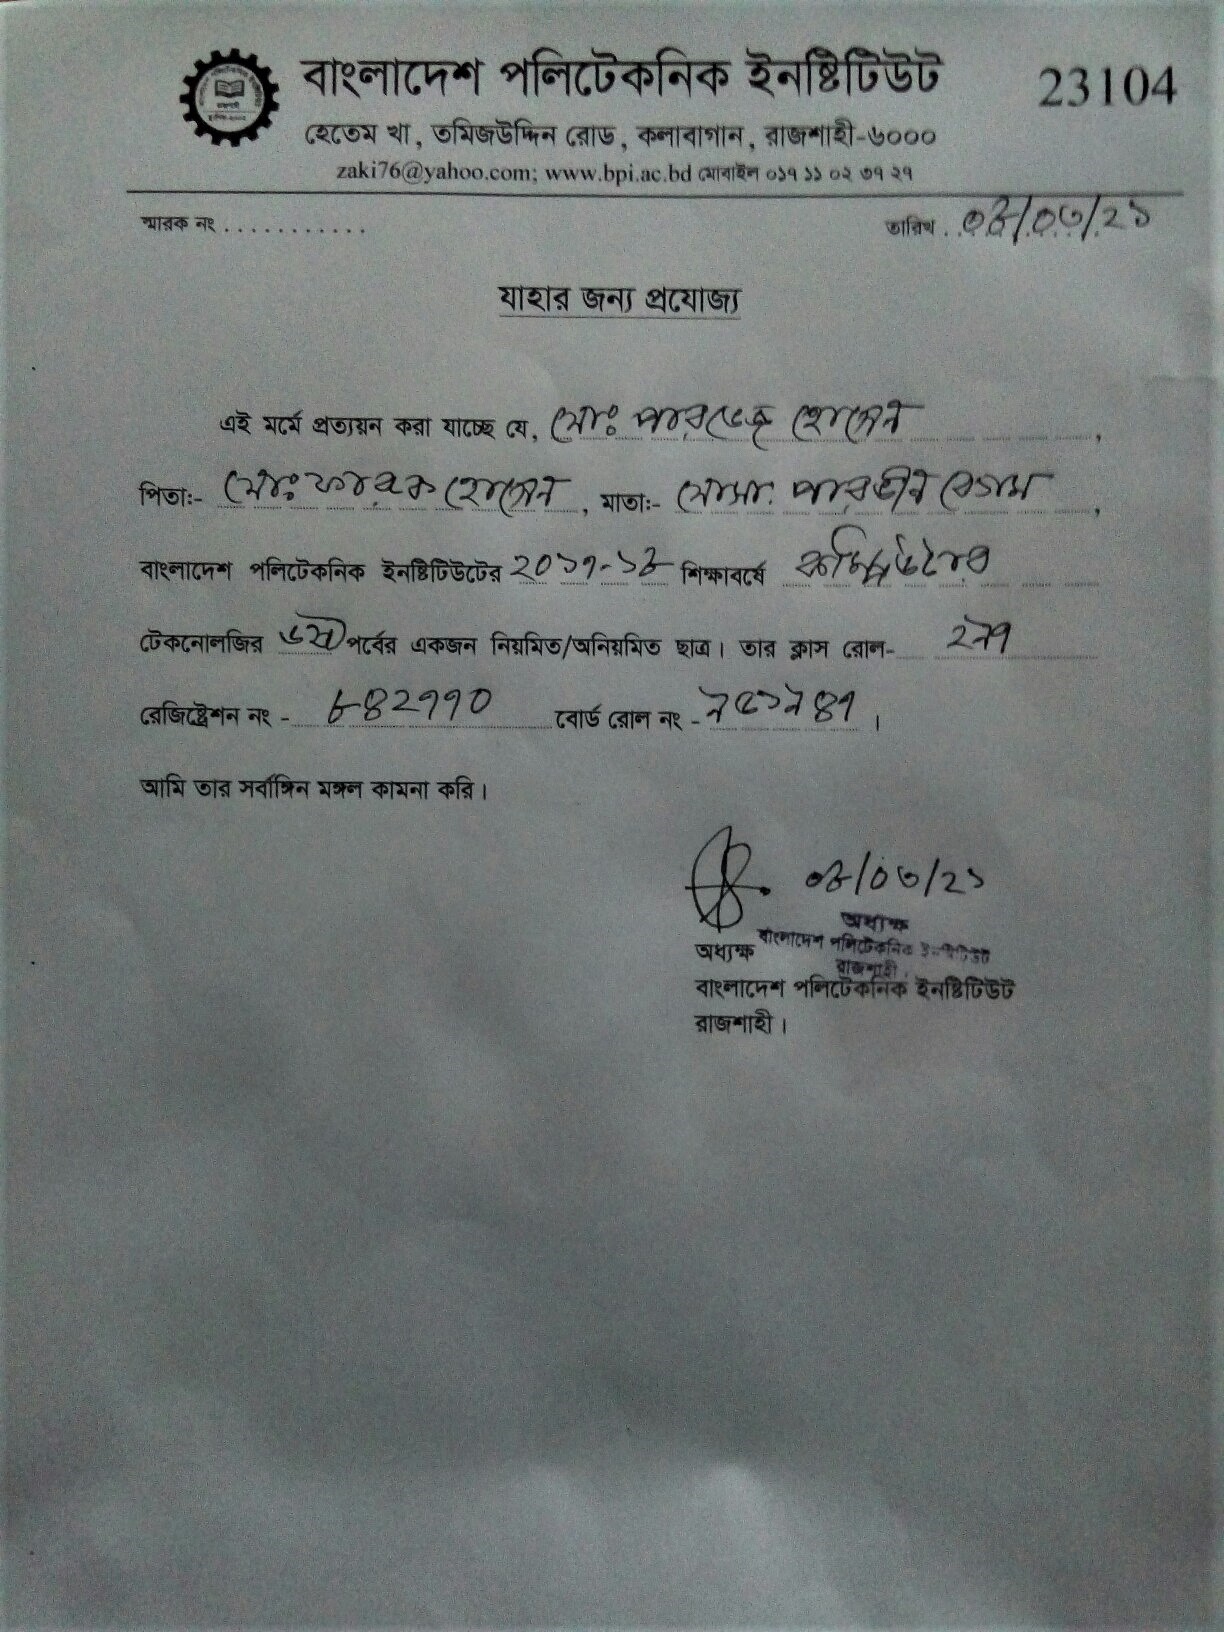 বাংলাদেশ পলিটেকনিক ইনষ্টিটিউট
23104
হেতেম খা, তমিজউদ্দিন রোড, কলাবাগান, রাজশাহী-৬০০০
zaki76@yahoo.com; www.bpi.ac.bd মোবাইল ০১৭ ১১ ০২ ৩৭ ২৭
স্মারক নং ........... তারিখ ..০৮/০৩/২১
যাহার জন্য প্রযোজ্য
এই মর্মে প্রত্যয়ন করা যাচ্ছে যে, মোঃ পারভেজ হোসেন,
পিতাঃ- মোঃ ফারুক হোসেন, মাতাঃ- মোসা. পারভীন বেগম,
বাংলাদেশ পলিটেকনিক ইনষ্টিটিউটের ২০১৭-১৮ শিক্ষাবর্ষে কম্পিউটার
টেকনোলজির ৬ষ্ঠ পর্বের একজন নিয়মিত/অনিয়মিত ছাত্র। তার ক্লাস রোল- ২৯৭
রেজিষ্ট্রেশন নং - ৮৪২৭৭০ বোর্ড রোল নং - ৯৫১৯৪৭।
আমি তার সর্বাঙ্গিন মঙ্গল কামনা করি।
০৮/০৩/২১
অধ্যক্ষ
বাংলাদেশ পলিটেকনিক ইনষ্টিটিউট
রাজশাহী।
অধ্যক্ষ
বাংলাদেশ পলিটেকনিক ইনষ্টিটিউট
রাজশাহী।